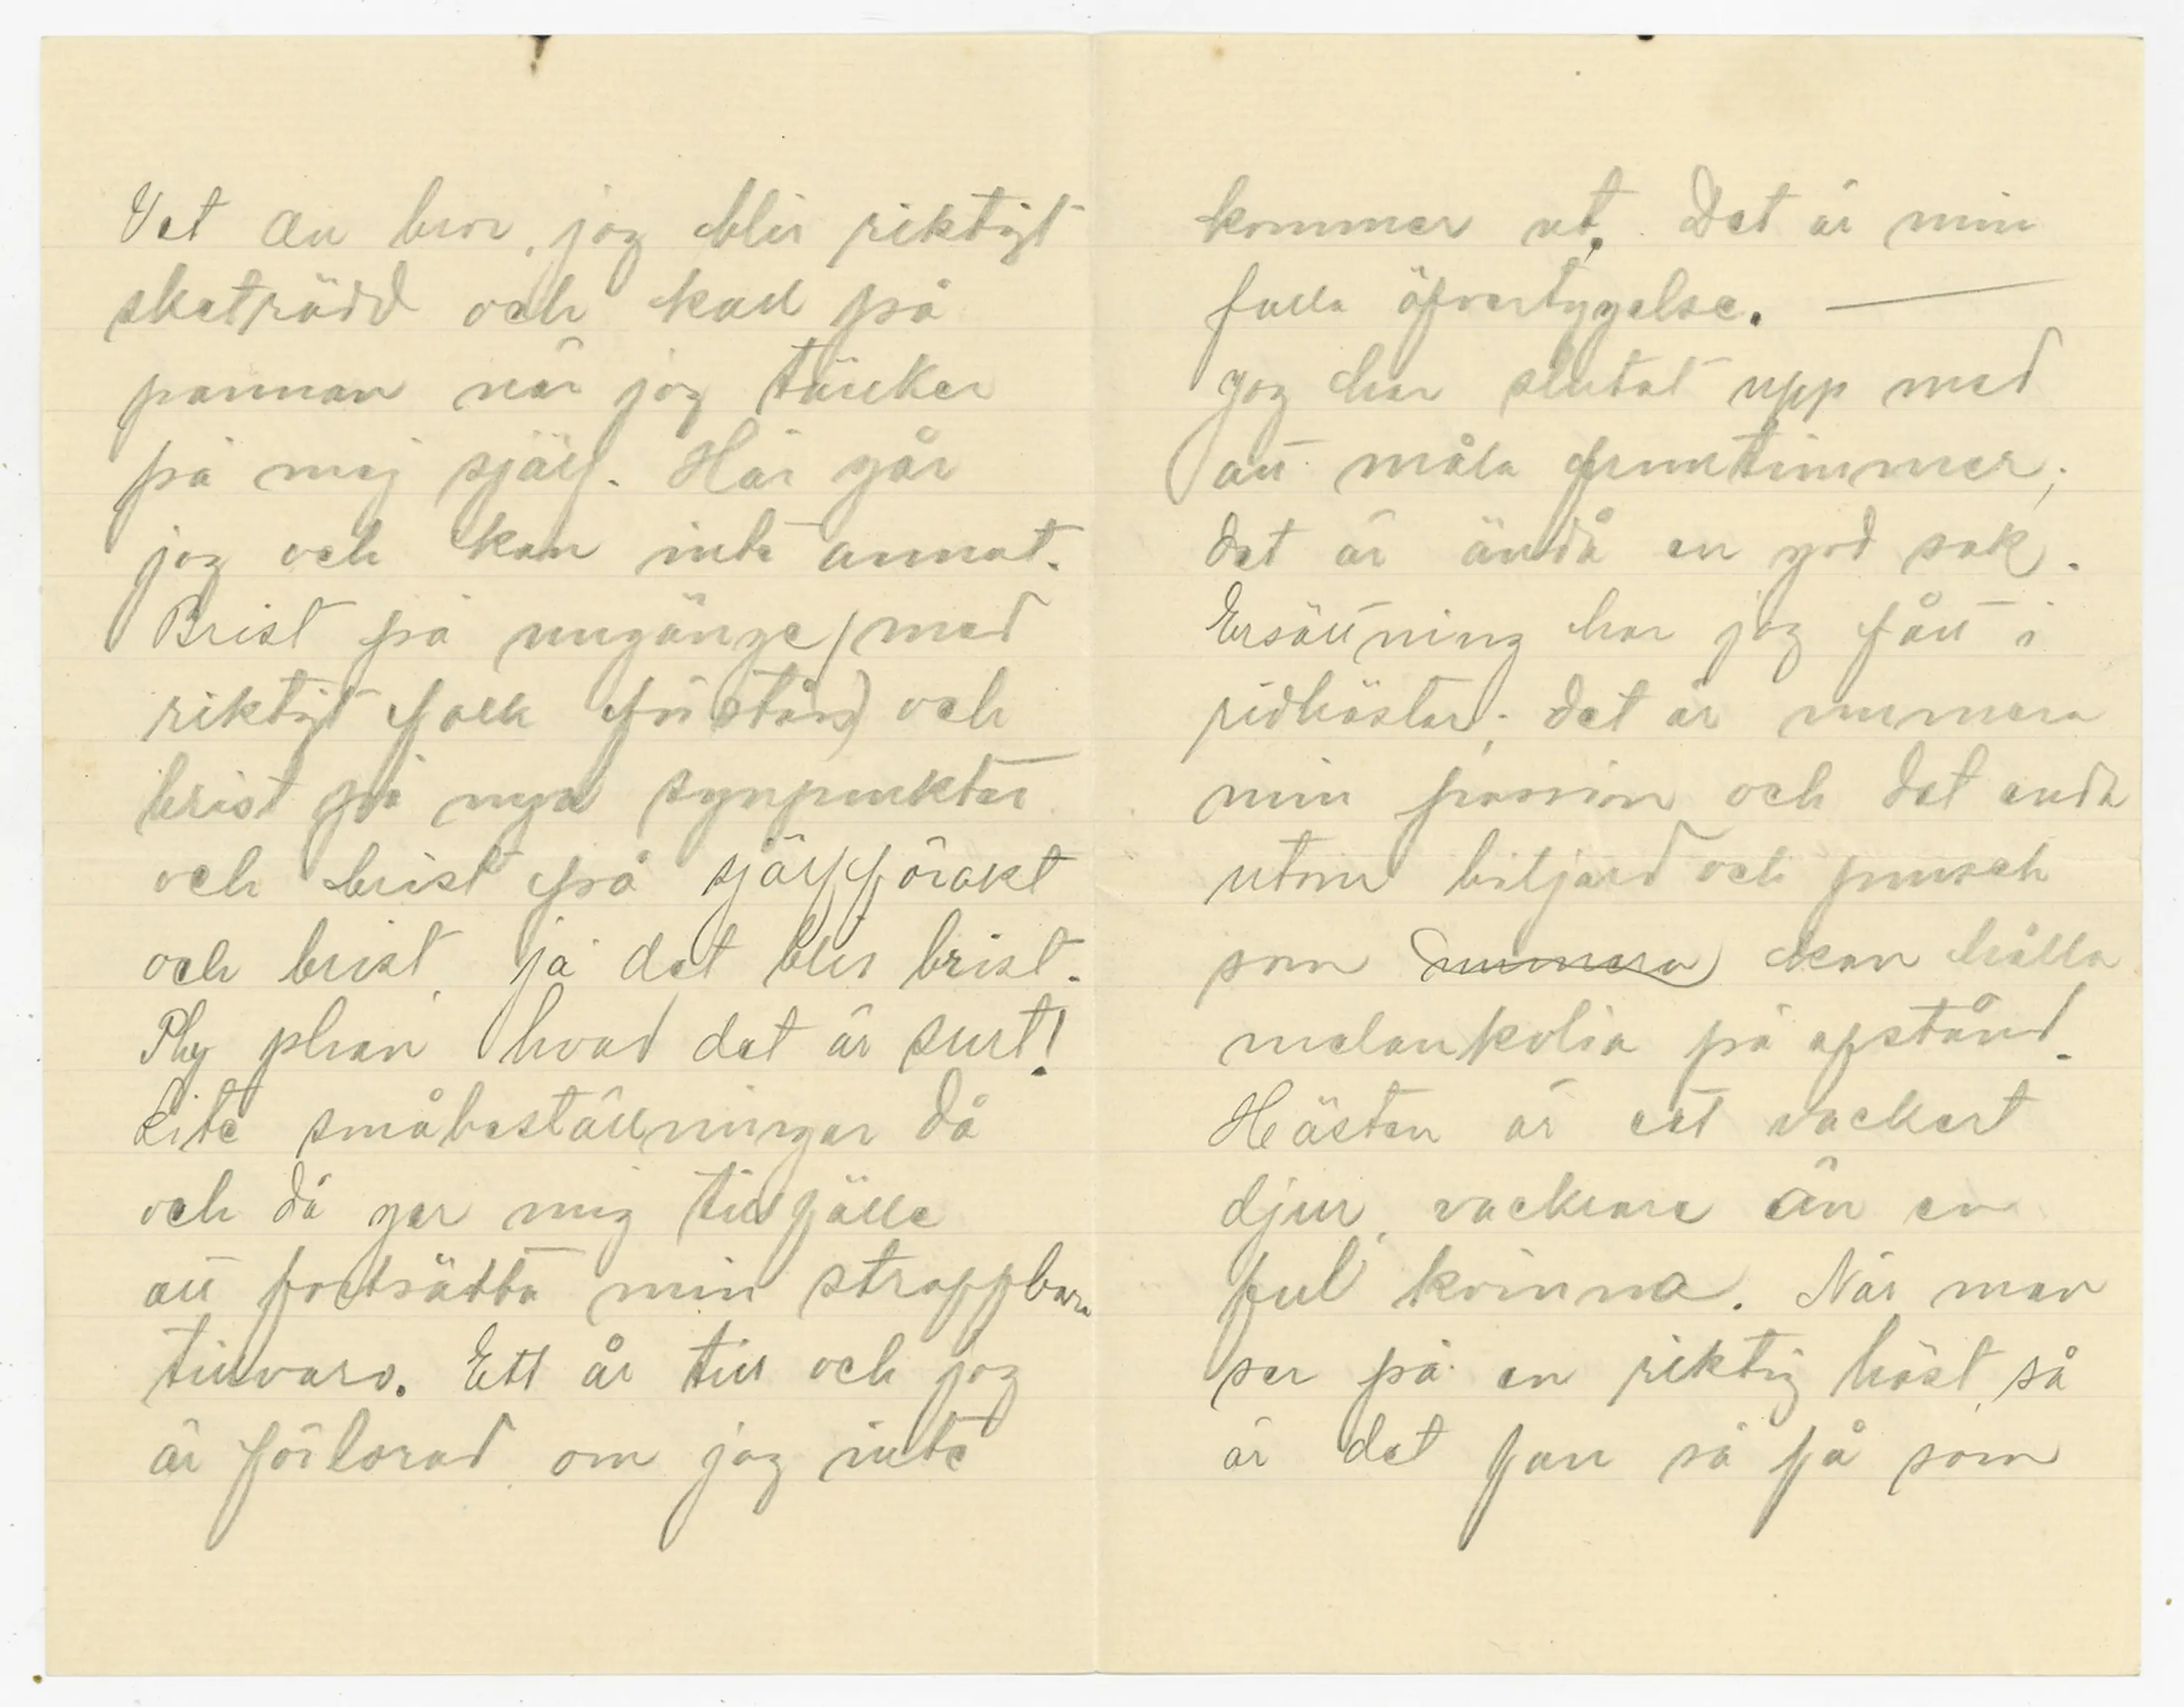 Vet du bror, jag blir riktigt
sketrädd och kall på
pannan när jag tänker
på mej själf. Här går
jag och kan inte annat.
Brist på umgänge (med
riktigt folk förstås) och
brist på nya synpunkter
och brist på själfförakt
och brist, ja det blir brist.
Phy phan, hvad det är surt!
Lite småbeställningar då
och då ger mig tillfälle
att fortsätta min straffbara
tillvaro. Ett år till och jag
är förlorad, om jag inte
kommer ut. Det är min
fulla öfvertygelse. —
Jag har slutat upp med
att måla fruntimmer;
det är ändå en god sak.
Ersättning har jag fått i
ridhästar; det är numera
min passion och det enda
utom biljard och punsch
som numera kan hålla
melankolia på afstånd.
Hästen är ett vackert
djur, vackrare än en
ful kvinna. När man
ser på en riktig häst, så
är det fan så på som